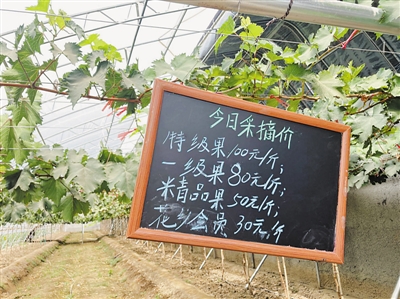 今日采摘价
特级果100元/斤;
一级果80元/斤;
米青品果50元/斤;
30元/斤